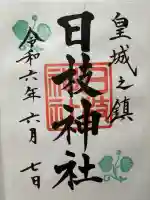 皇城之鎮
日枝神社
令和六年六月七日